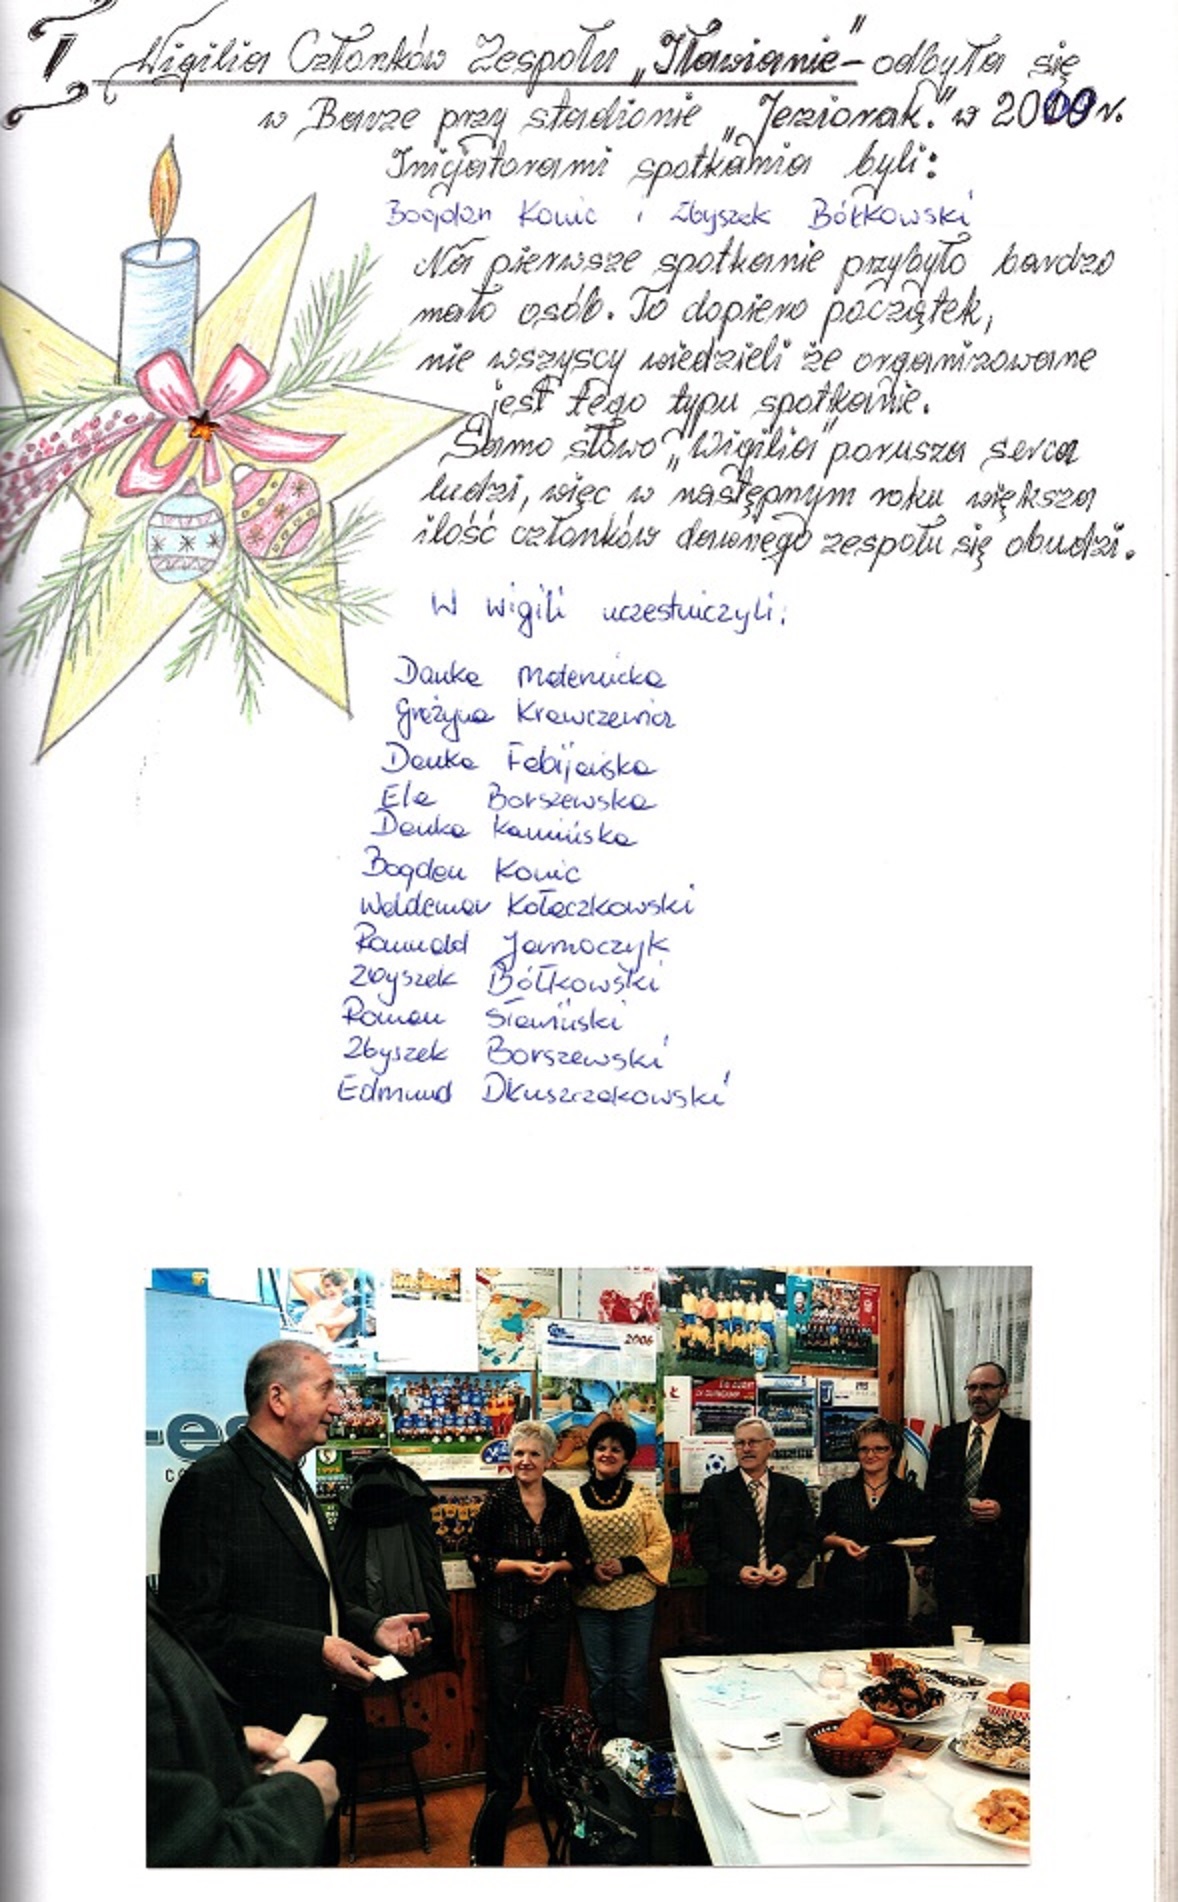 I Wigilia Członków Zespołu „Iławianie” - odbyła się
w Barze przy stadionie „Jeziorak”. w 2009 r.
Inicjatorami spotkania byli:
Bogdan Konic i Zbyszek Bółkowski
Na pierwsze spotkanie przybyło bardzo
mało osób. To dopiero początek,
nie wszyscy wiedzieli że organizowane
jest tego typu spotkanie.
Samo słowo „Wigilia” porusza serca
ludzi, więc w następnym roku większa
ilość członków dawnego zespołu się obudzi.
W wigili uczestniczyli:
Danka Maternicka
Grażyna Krawczewicz
Danka Fabijańska
Ela Borszewska
Danka Kamińska
Bogdan Konic
Waldemar Kołaczkowski
Romuald Jarmoczyk
Zbyszek Bółkowski
Roman Sławiński
Zbyszek Borszewski
Edmund Dłuszczakowski
2006
-es